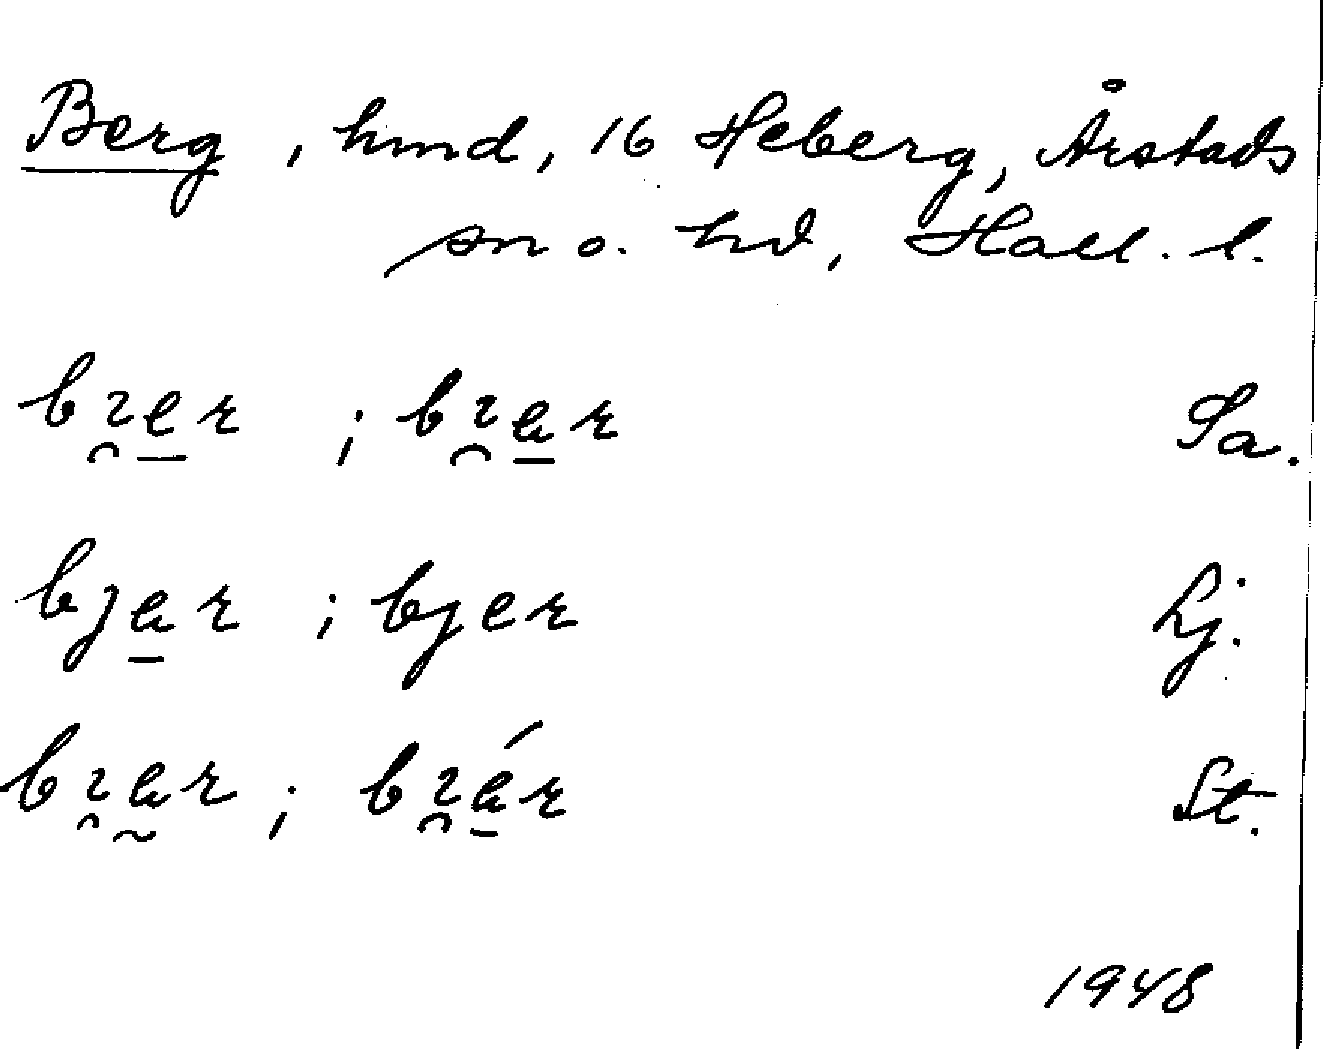 Berg, hmd, 16 Heberg, Årstads
sn o. hd, Hall. l.
bɿ̯e̲r ; bɿ̯a̲r Sa.
bja̲r ; bjer Lj.
bɿ̯a̰r ; bɿ̯á̲r St.
1948